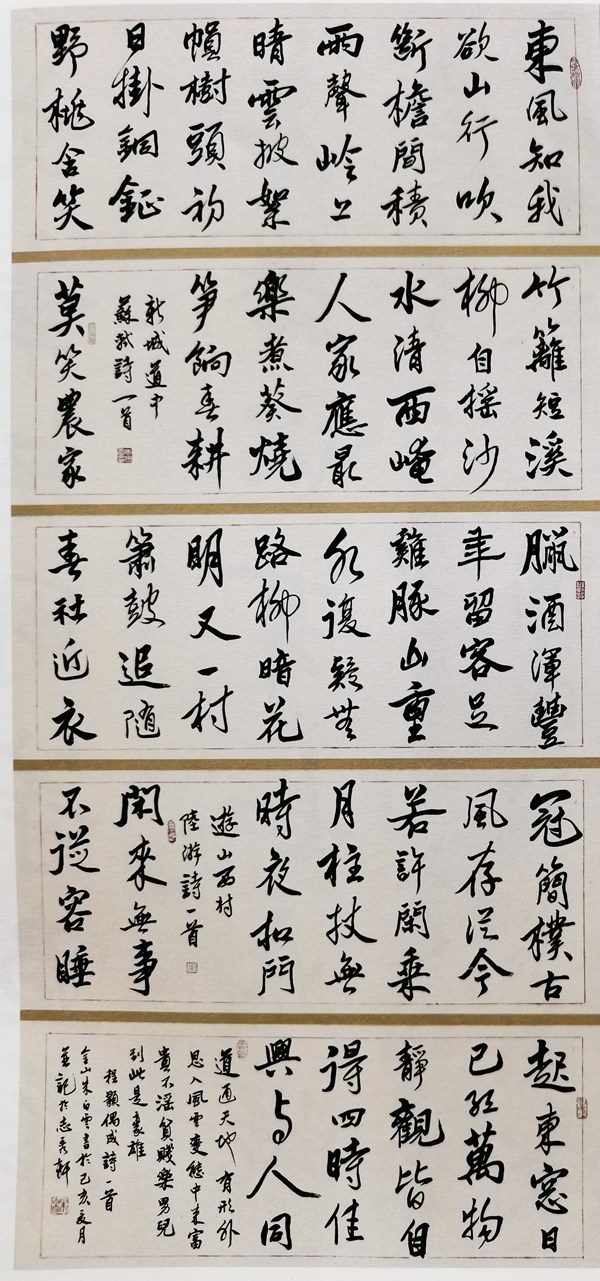 東風知我
欲山行吹
斷檐間積
雨聲岭上
晴雲披絮
帽樹頭初
日掛銅鉦
野桃含笑
竹籬短溪
柳自摇沙
水清西崦
人家應最
樂煮葵燒
笋餉春耕
新城道中
蘇軾詩一首
莫笑農家
臘酒渾豐
年留客足
雞豚山重
水複疑無
路柳暗花
明又一村
簫鼓追随
春社近衣
冠簡樸古
風存從今
若許閑乘
月柱杖無
時夜扣門
遊山西村
陸游詩一首
閑來無事
不從容睡
起東窓日
已紅萬物
靜觀皆自
得四時佳
興与人同
道通天地有形外
思入風雲變態中來富
貴不淫貧賤樂男兒
到此是豪雄
程顥偶成詩一首
金山朱白雲書於己亥夏月
並記於志秀軒